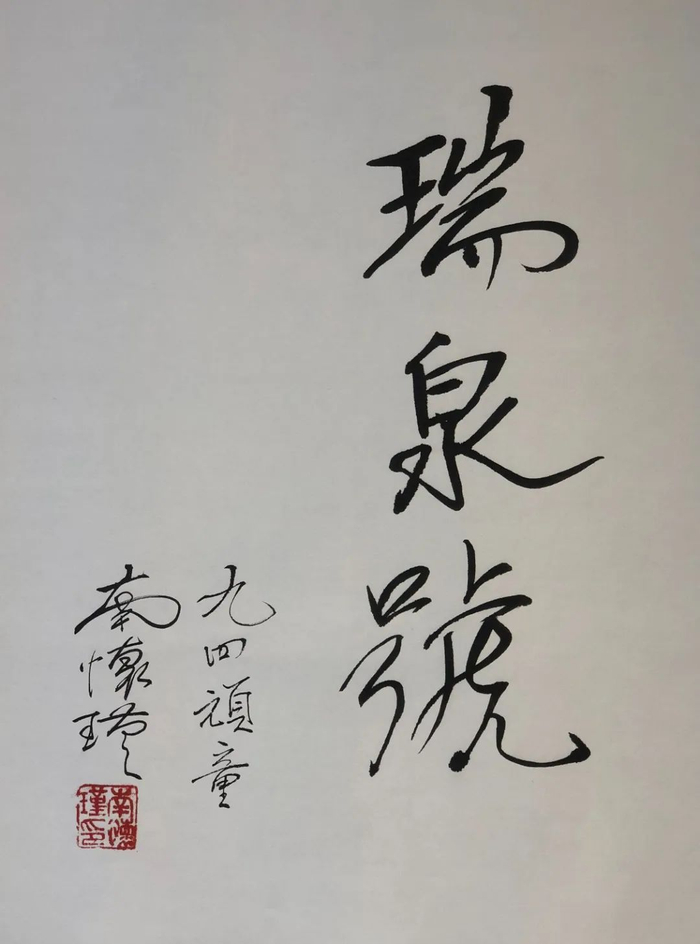 瑞泉號
九四頑童
南懷瑾
南懷瑾印